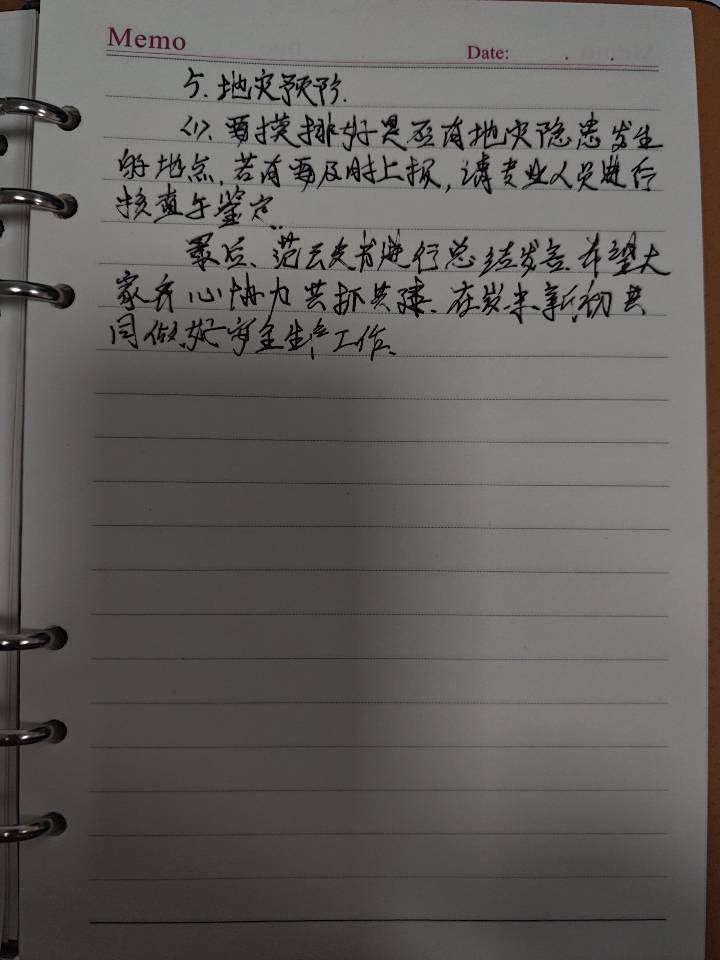 Memo Date: . .
5. 地灾预防.
(1). 要摸排好是否有地灾隐患发生
的地点,若有要及时上报,请专业人员进行
核查与鉴定.
最后、范云光书进行总结发言.希望大
家齐心协力共抓共建.在岁末新初共
同做好安全生产工作.